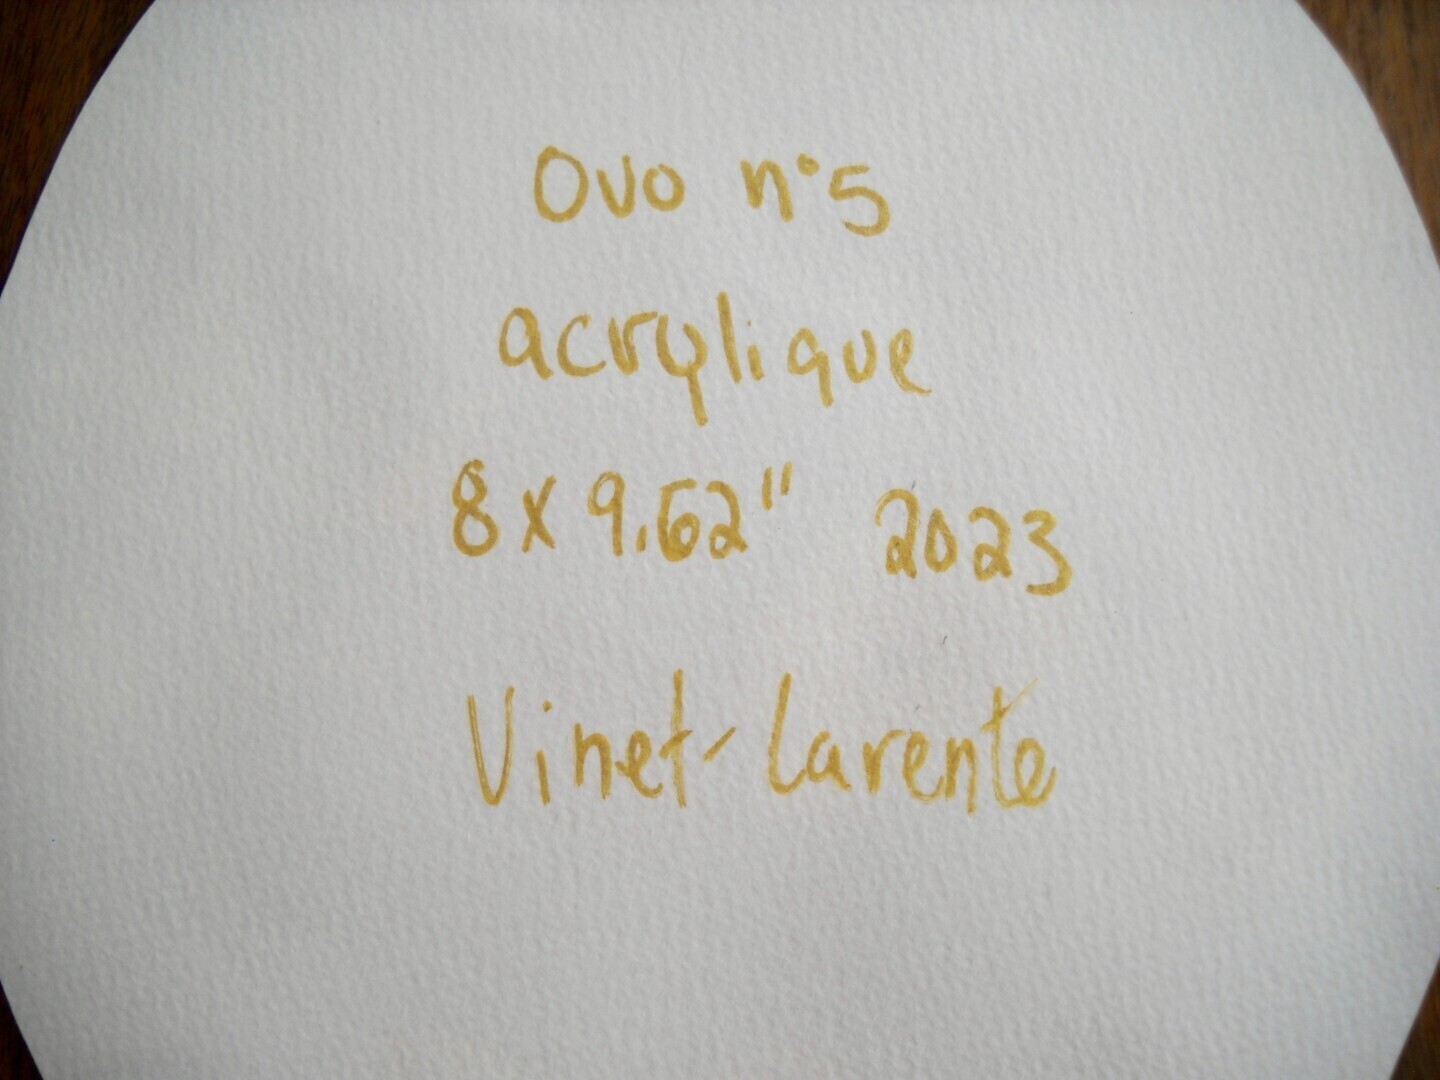 Ovo n°5
acrylique
8 x 9.62" 2023
Vinet-Larente